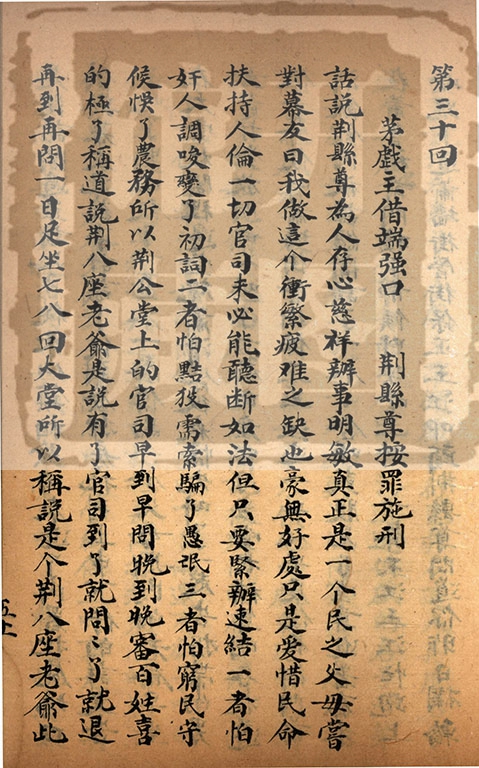 第三十回
茅戲主借端强口　荆縣尊按罪施刑
話説荆縣尊為人存心慈祥辦事明敏真正是一个民之父母嘗
對幕友曰我做這个衝繁疲难之缺也豪無好處只是爱惜民命
扶持人倫一切官司未必能聽断如法但只要緊辦速結一者怕
奸人調唆變了初詞二者怕黠狡需索騙了愚氓三者怕窮民守
候悮了農務所以荆公堂上的官司早到早問晚到晚審百姓喜
的極了稱道説荆八座老爺是説有了官司到了就問〻了就退
再到再問一日足坐七八回大堂所以稱説是个荆八座老爺此